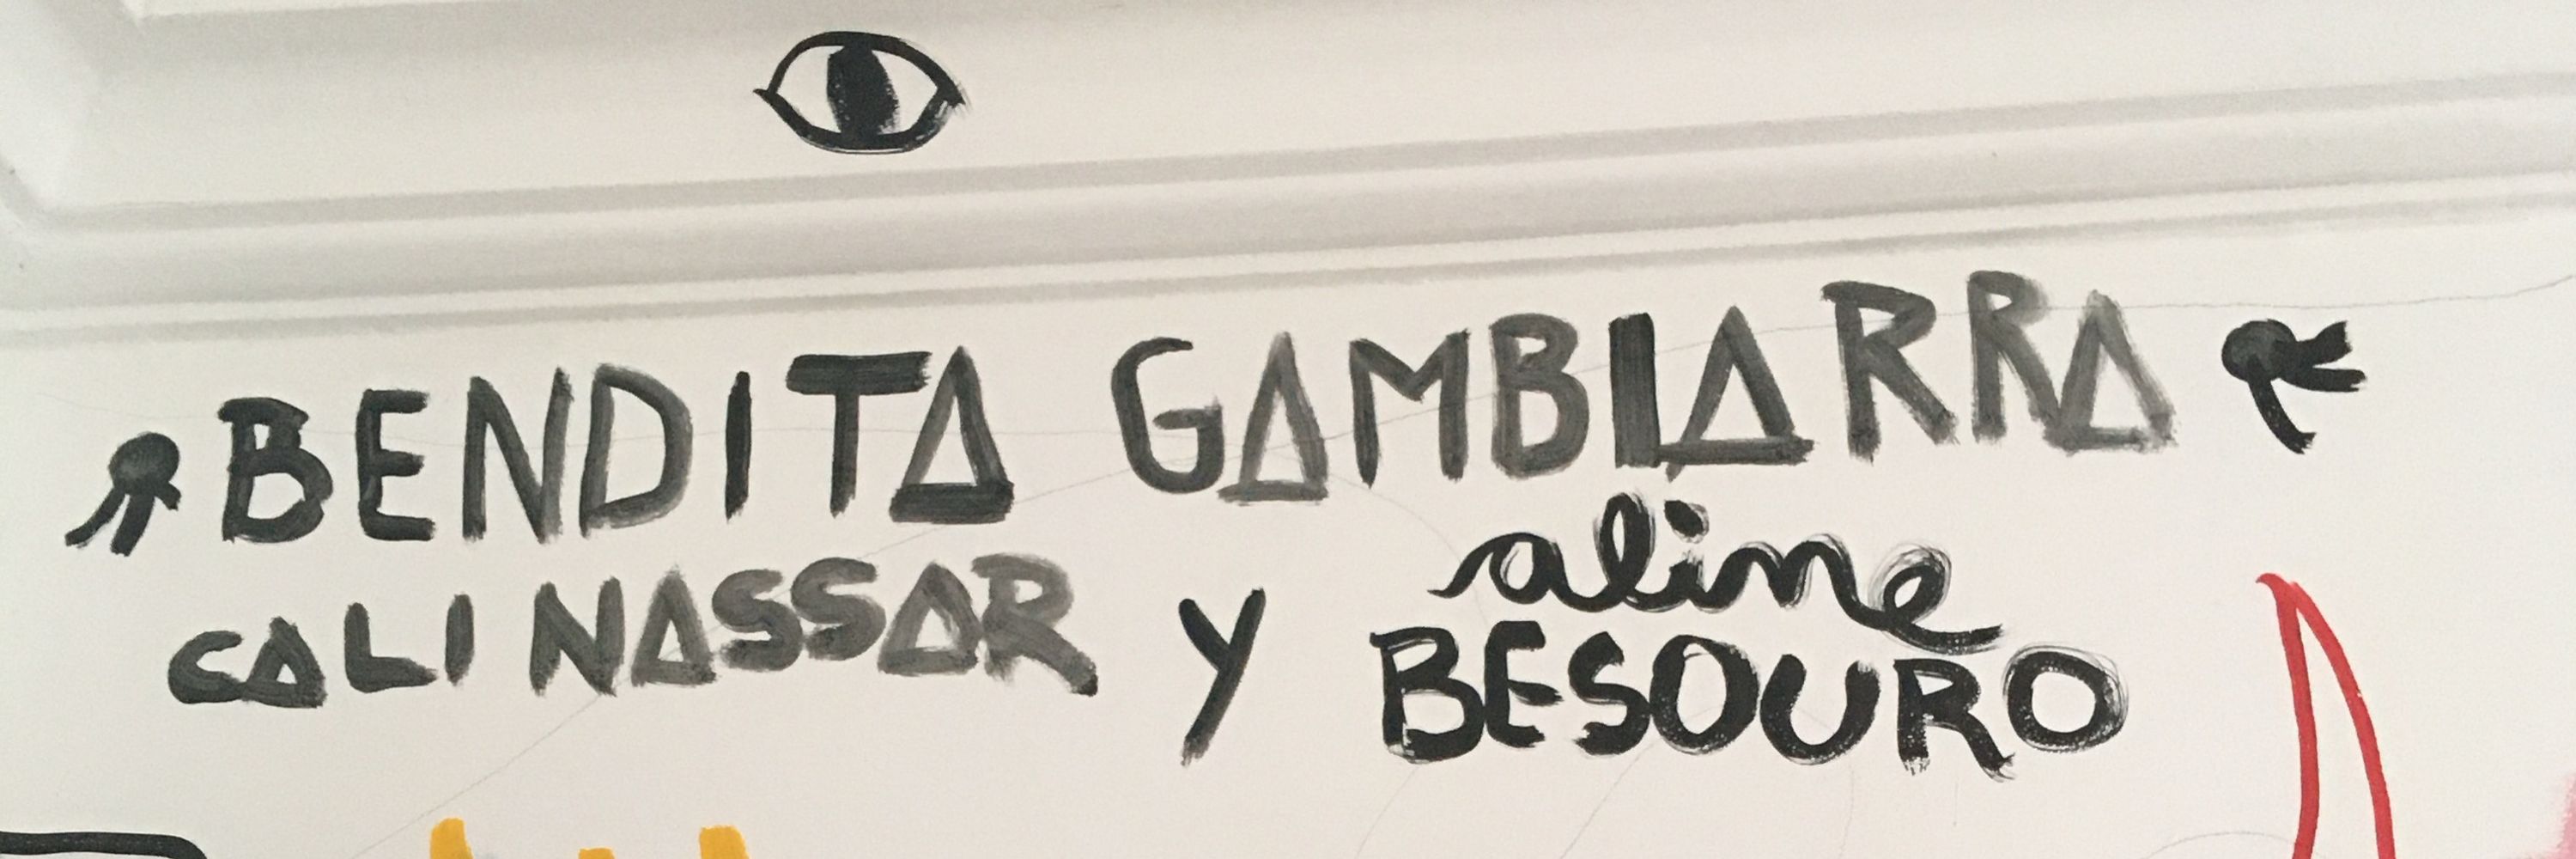 BENDITA GAMBIARRA
CALI NASSAR y aline
BESOURO